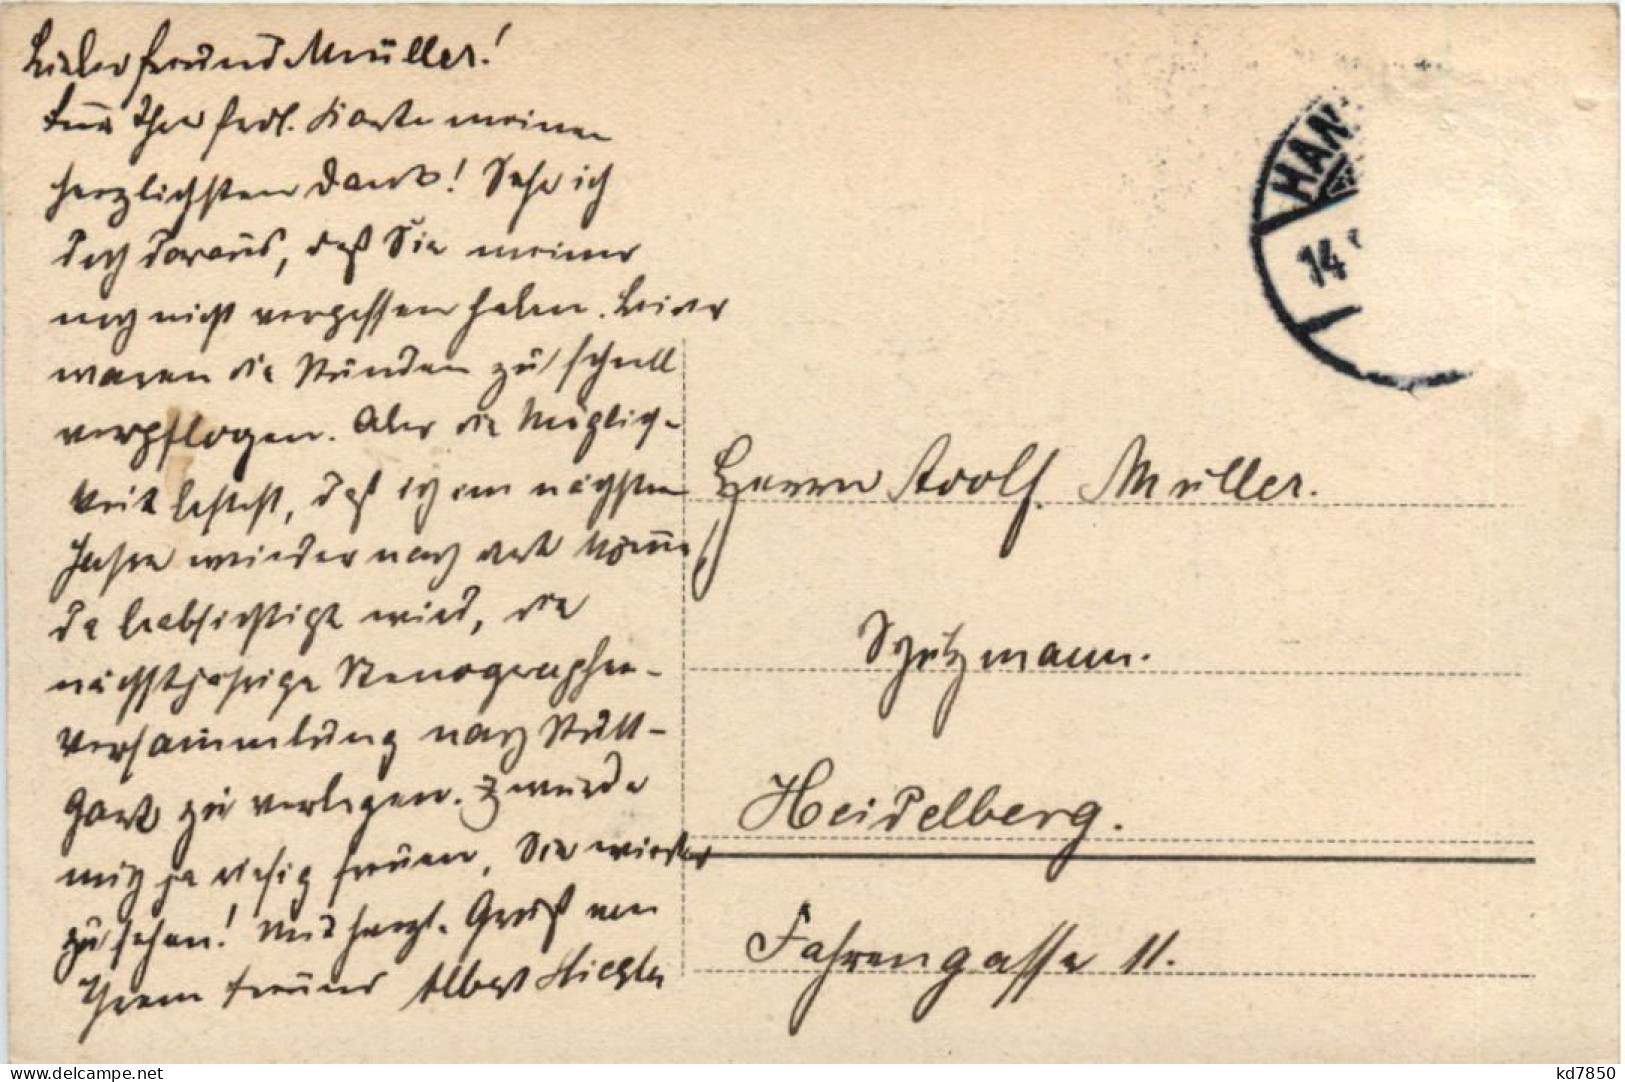 Lieber Freund Müller!
Für Ihre frdl. Karte meinen
herzlichsten Dank! Sehe ich
doch daraus, daß Sie meiner
noch nicht vergessen haben. Leider
waren die Stunden zu schnell
verpflogen. Aber die Möglich-
keit besteht, daß ich im nächsten
Jahre wieder nach dort komme
da beabsichtigt wird, die
nächstjährige Stenographen-
versammlung nach Stutt-
gart zu verlegen. Ich würde
mich ja riesig freuen, Sie wieder
zu sehen! Mit herzl. Gruß von
Ihrem Freund Albert
HAN
14
Herrn Adolf Müller.
Schutzmann.
Heidelberg.
Fahrengasse 11.
delcampe.net
kd7850